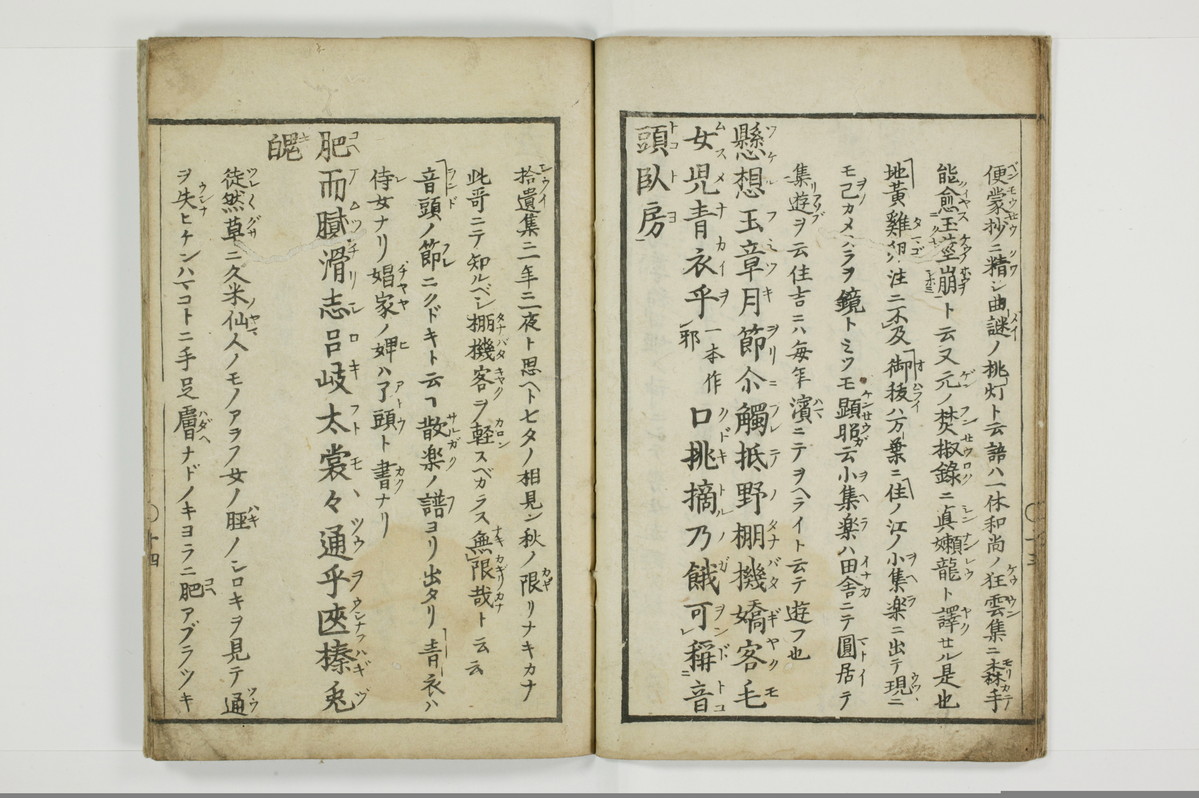 便蒙抄ニ精シ曲謎ノ挑灯ト云諺ハ一休和尚ノ狂雲集ニ森手
能愈玉莖崩ト云又元ノ焚椒錄ニ眞嬾龍ト譯セル是也
地黃雞卵ハ注ニ不及御秡ハ万葉ニ住ノ江ノ小集楽ニ出テ現ニ
モ己カメハラヲ鏡トミツモ顕昭云小集楽ハ田舎ニテ圓居テ
集遊ヲ云住吉ニハ毎年濱ニテヲヘライト云テ遊フ也
懸想玉章月節尒觸抵野棚機嬌客毛
女児青衣乎一本作邪口挑摘乃餓可稱音
頭臥房
拾遺集ニ年ニ一夜ト思ヘト七夕ノ相見シ秋ノ限リナキカナ
此哥ニテ知ルベシ棚機客ヲ軽スベカラス無限哉ト云云
音頭ノ節ニクドキト云フ散楽ノ譜ヨリ出タリ青衣ハ
侍女ナリ娼家ノ婢ハ了頭ト書ナリ
肥而膩滑志呂岐太裳々通乎匧榛兎
皅
徒然草ニ久米仙人ノモノアラフ女ノ脛ノシロキヲ見テ通
ヲ失ヒケンハマコトニ手足膚ナドノキヨラニ肥アブラツキ
十三
十四